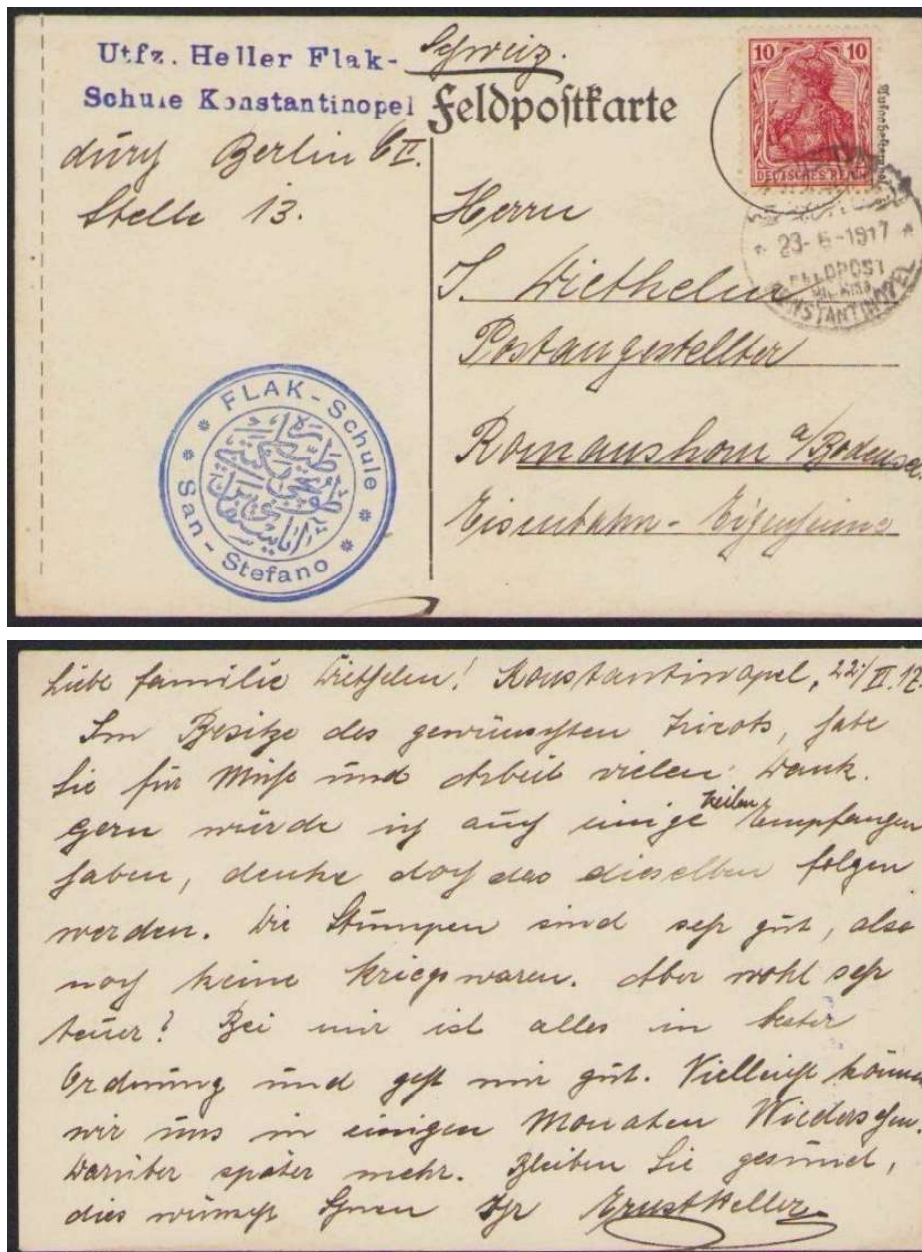 Utfz. Heller Flak-
Schule Konstantinopel
durch Berlin C II.
Stelle 13.
Schweiz.
Feldpostkarte
10 10
DEUTSCHES REICH
23-6-1917
FELDPOST
CONSTANTINOPEL
Herrn
J. Wiethelm
Postangestellter
Romanshorn a/Bodensee
Eisenbahn-Eigenheime
FLAK-Schule
San-Stefano
Liebe Familie Wiethelm! Konstantinopel, 22/VI.17
Im Besitze des gewünschten Tricots, habe
Sie für Mühe und Arbeit vielen Dank.
Gern würde ich auch einige Zeilen Empfangen
haben, denke doch das dieselben folgen
werden. Die Stumpen sind sehr gut, also
noch keine Kriegswaren. Aber wohl sehr
teuer? Bei mir ist alles in bester
Ordnung und geht mir gut. Vielleicht können
wir uns in einigen Monaten Wiedersehen.
Darüber später mehr. Bleiben Sie gesund,
dies wünscht Ihnen Ihr Ernst Heller